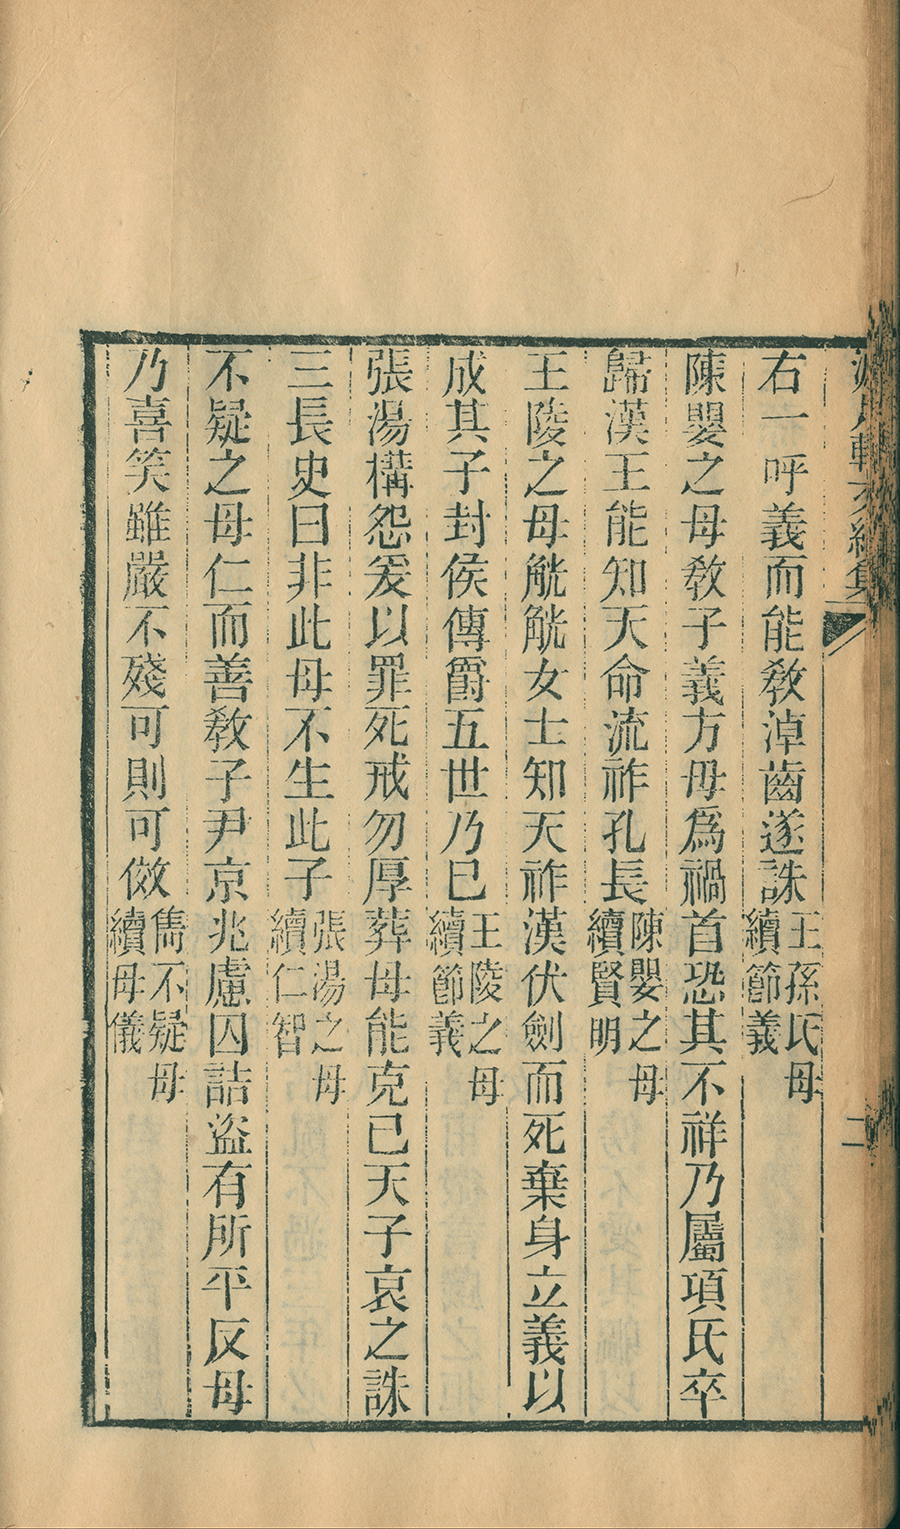 右一呼義而能敎淖齒遂誅王孫氏母續節義
陳嬰之母敎子義方毋爲禍首恐其不祥乃屬項氏卒
歸漢王能知天命流祚孔長陳嬰之母續賢明
王陵之母觥觥女士知天祚漢伏劍而死棄身立義以
成其子封侯傳爵五世乃已王陵之母續節義
張湯構怨爰以罪死戒勿厚葬母能克己天子哀之誅
三長史曰非此母不生此子張湯之母續仁智
不疑之母仁而善敎子尹京兆慮囚詰盜有所平反母
乃喜笑雖嚴不殘可則可傚雋不疑母續母儀
二